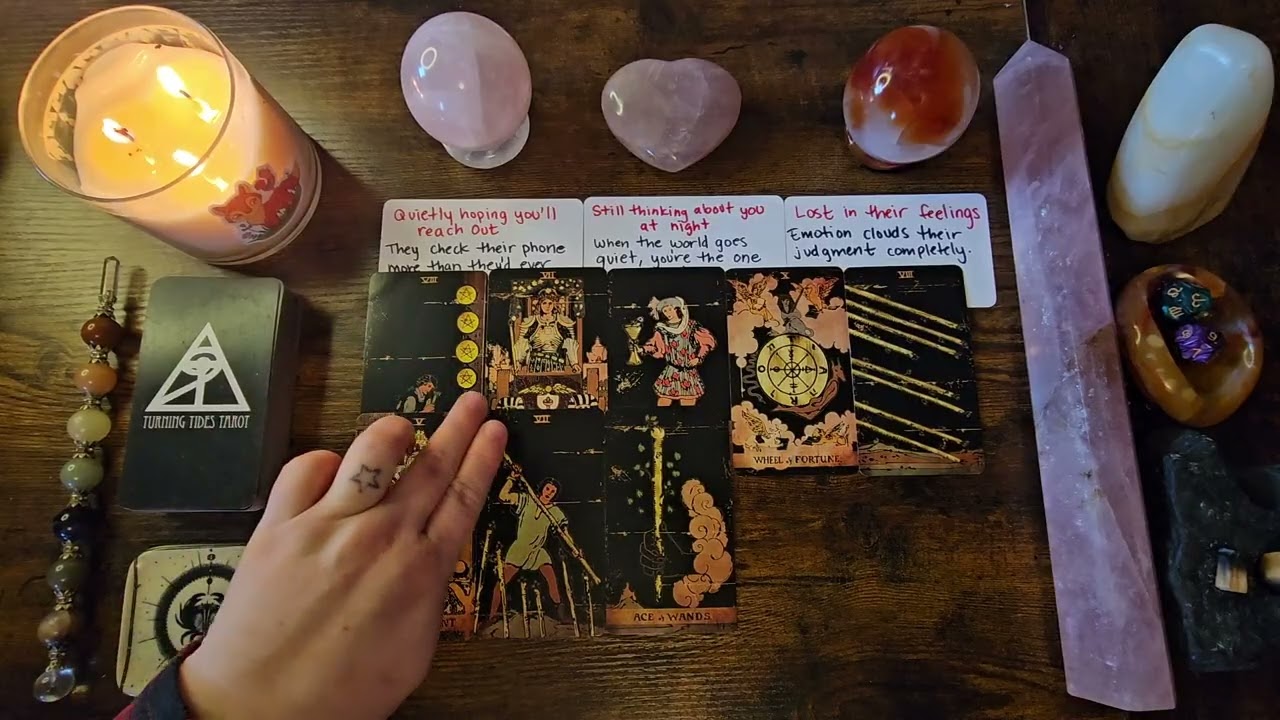 Quietly hoping you'll
reach out
They check their phone
more than they'd ever
Still thinking about you
at night
When the world goes
quiet, you're the one
Lost in their feelings
Emotion clouds their
judgment completely.
VIII
VII
X
VIII
WHEEL of FORTUNE
TURNING TIDES TAROT
VII
ACE of WANDS